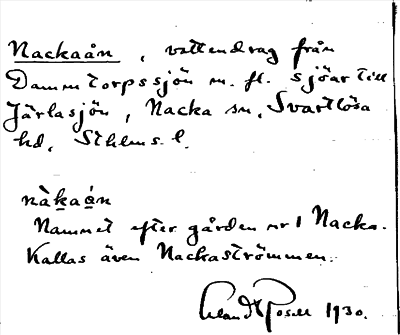 Nackaån, vattendrag från
Dammtorpssjön m. fl. sjöar till
Järlasjön, Nacka sn, Svartlösa
hd, Sthlms l.
nàkaán
Namnet efter gården nr 1 Nacka.
Kallas även Nackaströmmen.
1930.